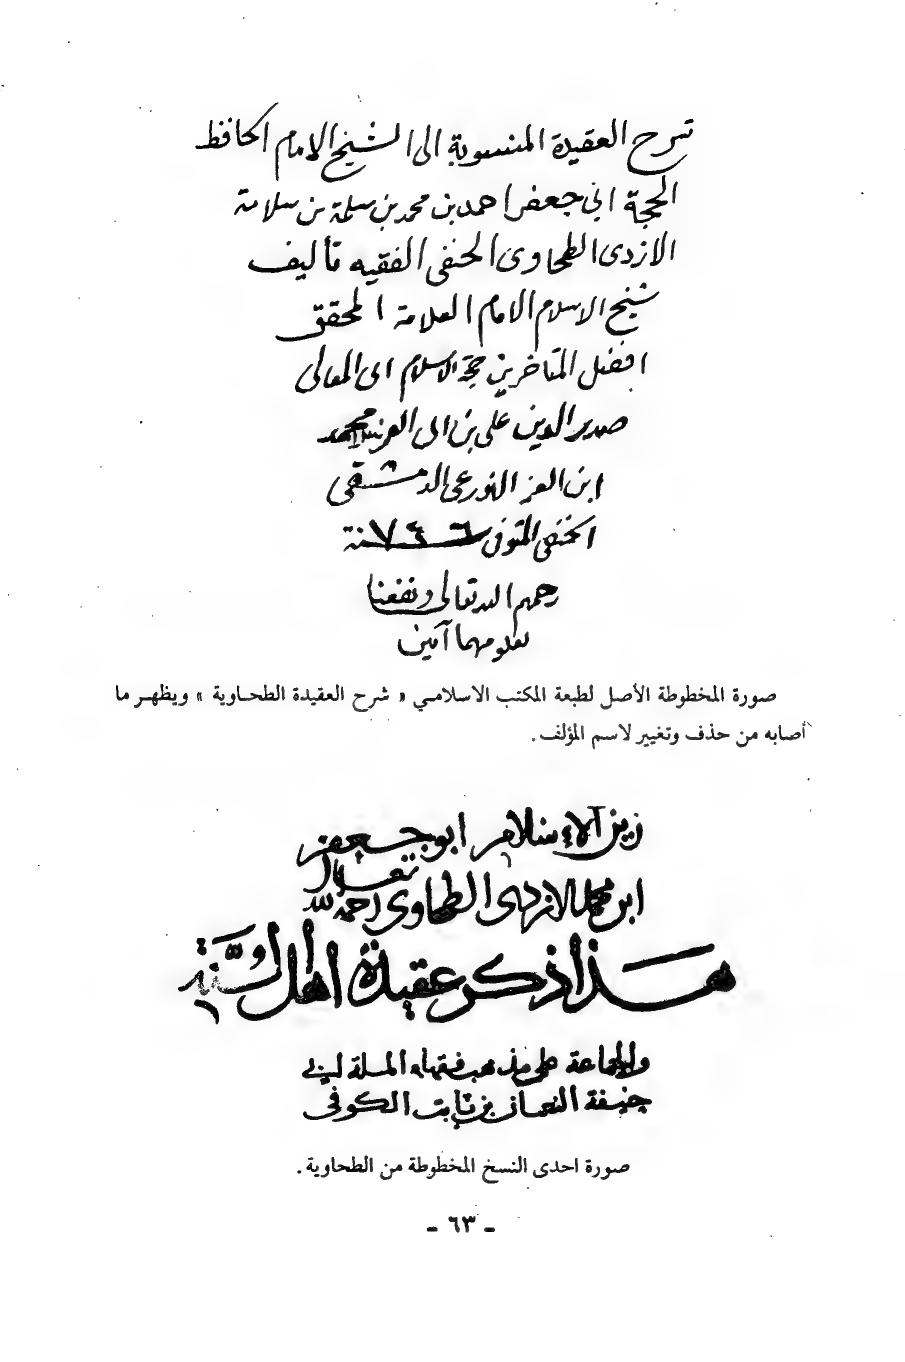 شرح العقيدة المنسوبة الى الشيخ الامام الحافظ
الحجة ابي جعفر احمد بن محمد بن سلمة بن سلامة
الازدى الطحاوى الحنفى الفقيه تأليف
شيخ الاسلام الامام العلامة المحقق
افضل المتاخرين حجة الاسلام ابى المعالى
صدر الدين على بن ابى العز
ابن العز الدمشقى
الحنفى المتوفى سنة ٧٤٦
رحمهم الله تعالى ونفعنا
بعلومهما آمين
صورة المخطوطة الأصل لطبعة المكتب الاسلامي « شرح العقيدة الطحاوية » ويظهر ما
أصابه من حذف وتغيير لاسم المؤلف .
زين الاسلام ابو جعفر
ابن محمد الازدى الطحاوى رحمه الله تعالى
هذا ذكر عقيدة اهل السنة
والجماعة على مذهب فقهاء الملة ابي
حنيفة النعمان بن ثابت الكوفى
صورة احدى النسخ المخطوطة من الطحاوية .
- ٦٣ -